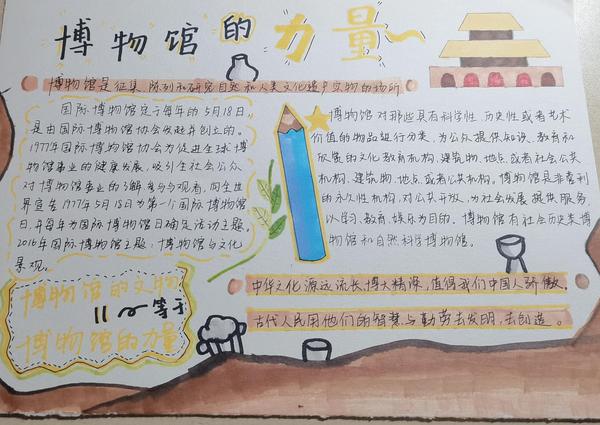 博物馆的力量
博物馆是征集、陈列和研究自然和人类文化遗产实物的场所
国际博物馆定于每年的5月18日,
是由国际博物馆协会发起并创立的。
1977年国际博物馆协会为促进全球博
物馆事业的健康发展,吸引全社会公众
对博物馆事业的了解参与与观看,向全世
界宣告1977年5月18日为第一个国际博物馆
日,并每年为国际博物馆日确定活动主题。
2016年国际博物馆主题:博物馆与文化
景观。
博物馆对那些具有科学性、历史性或者艺术
价值的物品进行分类,为公众提供知识、教育和
欣赏的文化教育机构、建筑物、地点或者社会公共
机构、建筑物、地点或者公共机构。博物馆是非营利
的永久性机构,对公共开放,为社会发展提供服务,
以学习、教育、娱乐为目的。博物馆有社会历史类博
物馆和自然科学博物馆。
博物馆的文物
等于
博物馆的力量
中华文化源远流长、博大精深,值得我们中国人骄傲。
古代人民用他们的智慧与勤劳去发明,去创造。